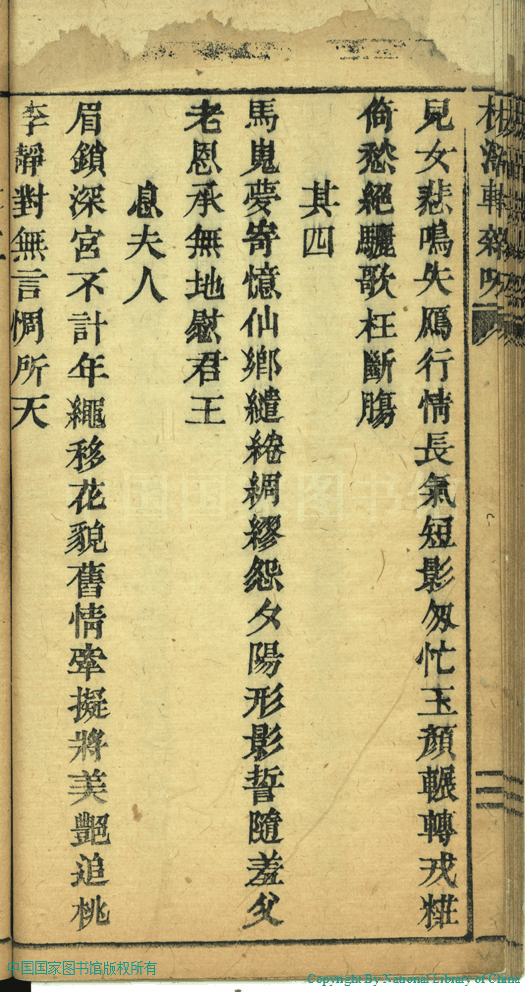 兒女悲鳴失鴈行情長氣短影匆忙玉顏輾轉戎粧
倚愁絕驪歌枉斷腸
其四
馬嵬夢寄憶仙鄉繾綣綢繆怨夕陽形影誓隨羞父
老恩承無地慰君王
息夫人
眉鎖深宮不計年繩移花貌舊情牽擬將美艷追桃
李靜對無言惆所天
中国国家图书馆版权所有
Copyright By National Library of China